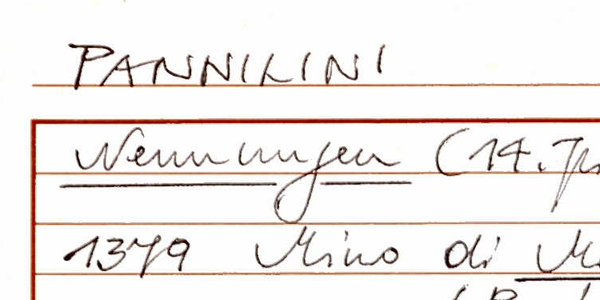 PANNILINI
Nennungen (14. J
1379 Mino di M